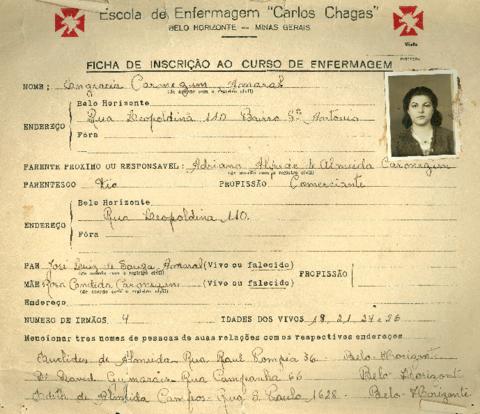 Escola de Enfermagem "Carlos Chagas"
BELO HORIZONTE — MINAS GERAIS
FICHA DE INSCRIÇÃO AO CURSO DE ENFERMAGEM
NOME: Engracia Caronegum Amaral
(de acordo com o registro civil)
Belo Horizonte
Rua Leopoldina 110 Bairro Sto Antonio
ENDEREÇO
Fóra
PARENTE PROXIMO OU RESPONSAVEL: Adriano Alfredo de Almeida Caronegum
(de acordo com o registro civil)
PARENTESCO Tio PROFISSÃO Comerciante
Belo Horizonte
Rua Leopoldina 110.
ENDEREÇO
Fóra
PAE José Luiz de Souza Amaral (Vivo ou falecido)
(de acordo com o registro civil)
PROFISSÃO
MÃE Rosa Candida Caronegum (Vivo ou falecida)
(de acordo com o registro civil)
Endereço
NUMERO DE IRMÃOS 4 IDADES DOS VIVOS 18, 21, 24 e 26
Mencionar tres nomes de pessoas de suas relações com os respectivos endereços
Euclides de Almeida Rua Raul Pompeia 36. Belo Horizonte
Dr David Guimarais Rua Campanha 66 Belo Horizonte
Edite de Almeida Campos - Rua S. Paulo 1628. Belo Horizonte